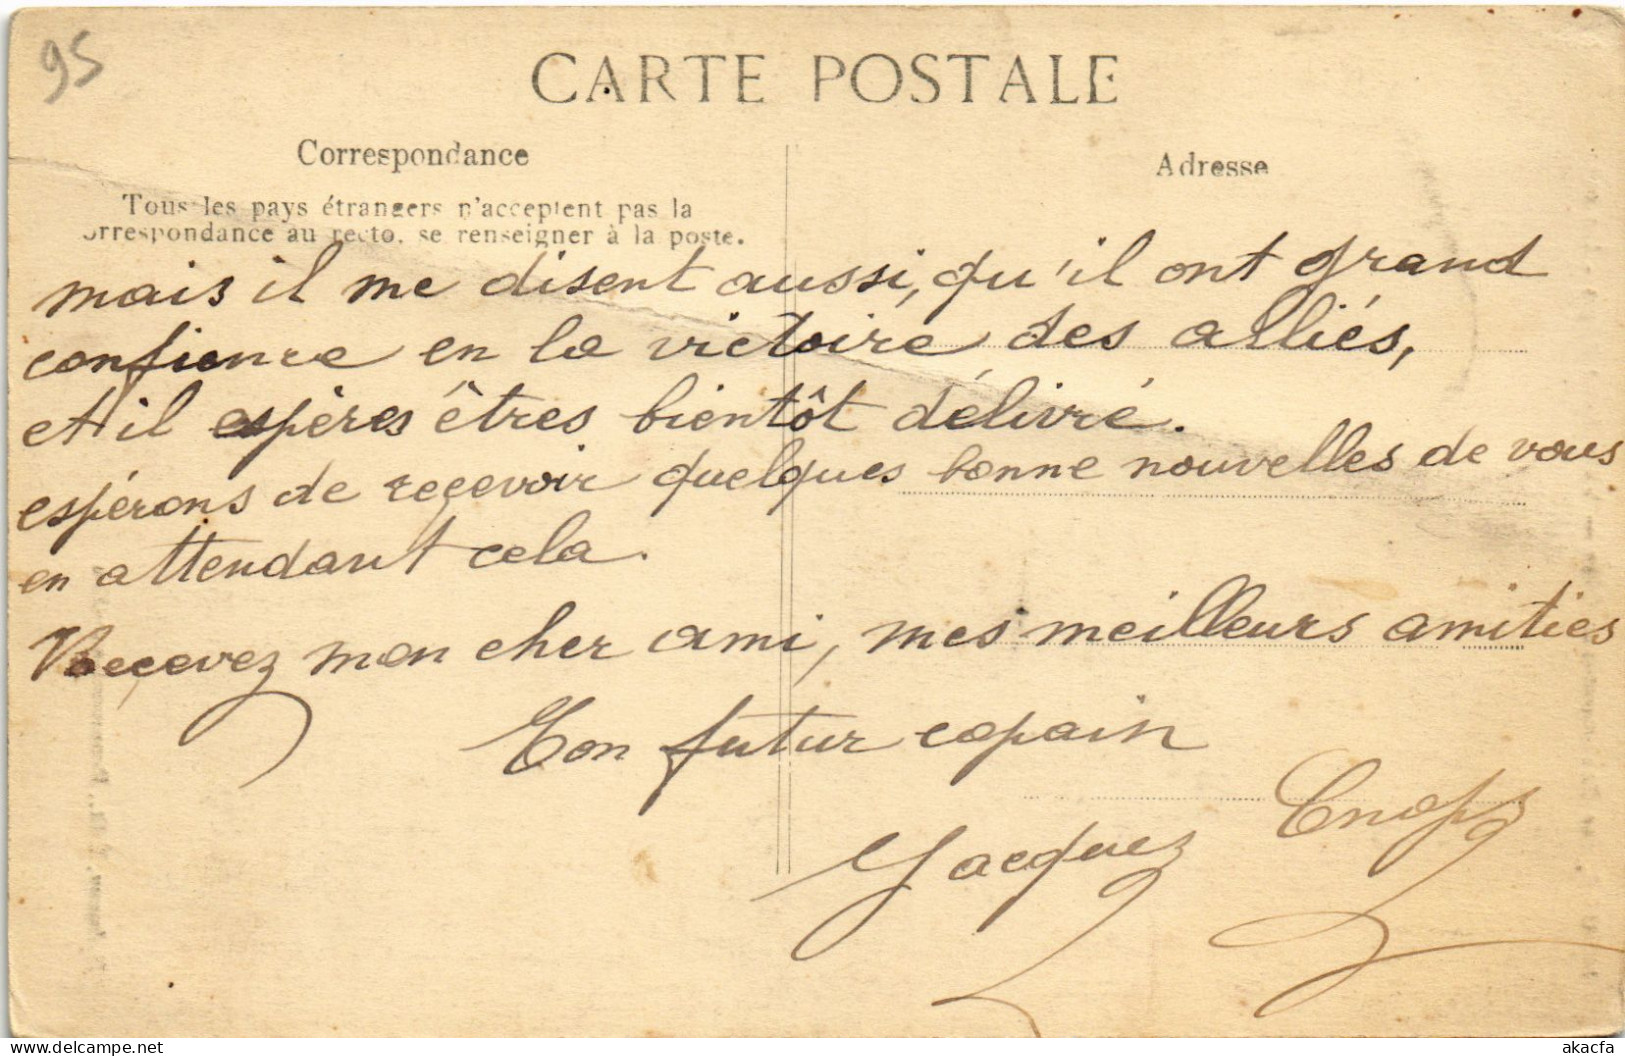 95
CARTE POSTALE
Correspondance
Adresse
Tous les pays étrangers n'acceptent pas la
orrespondance au recto, se renseigner à la poste.
mais il me disent aussi, qu'il ont grand
confience en la victoire des alliés,
et il espères êtres bientôt délivré.
espérons de reçevoir quelques bonne nouvelles de vous
en attendant cela.
Reçevez mon cher ami, mes meilleurs amities
Ton futur copain
Jacques
akacfa